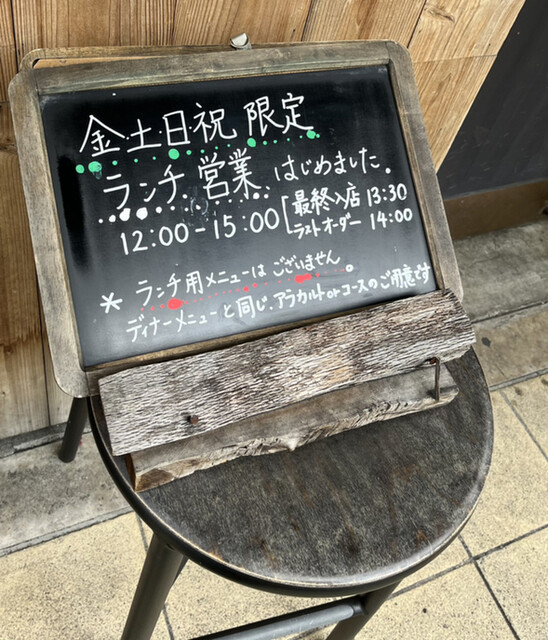 金土日祝 限定
ランチ 営業 はじめました。
12:00-15:00 [最終入店 13:30
ラストオーダー 14:00
* ランチ用メニューは ございません。
ディナーメニューと同じ、アラカルトorコースのご用意です